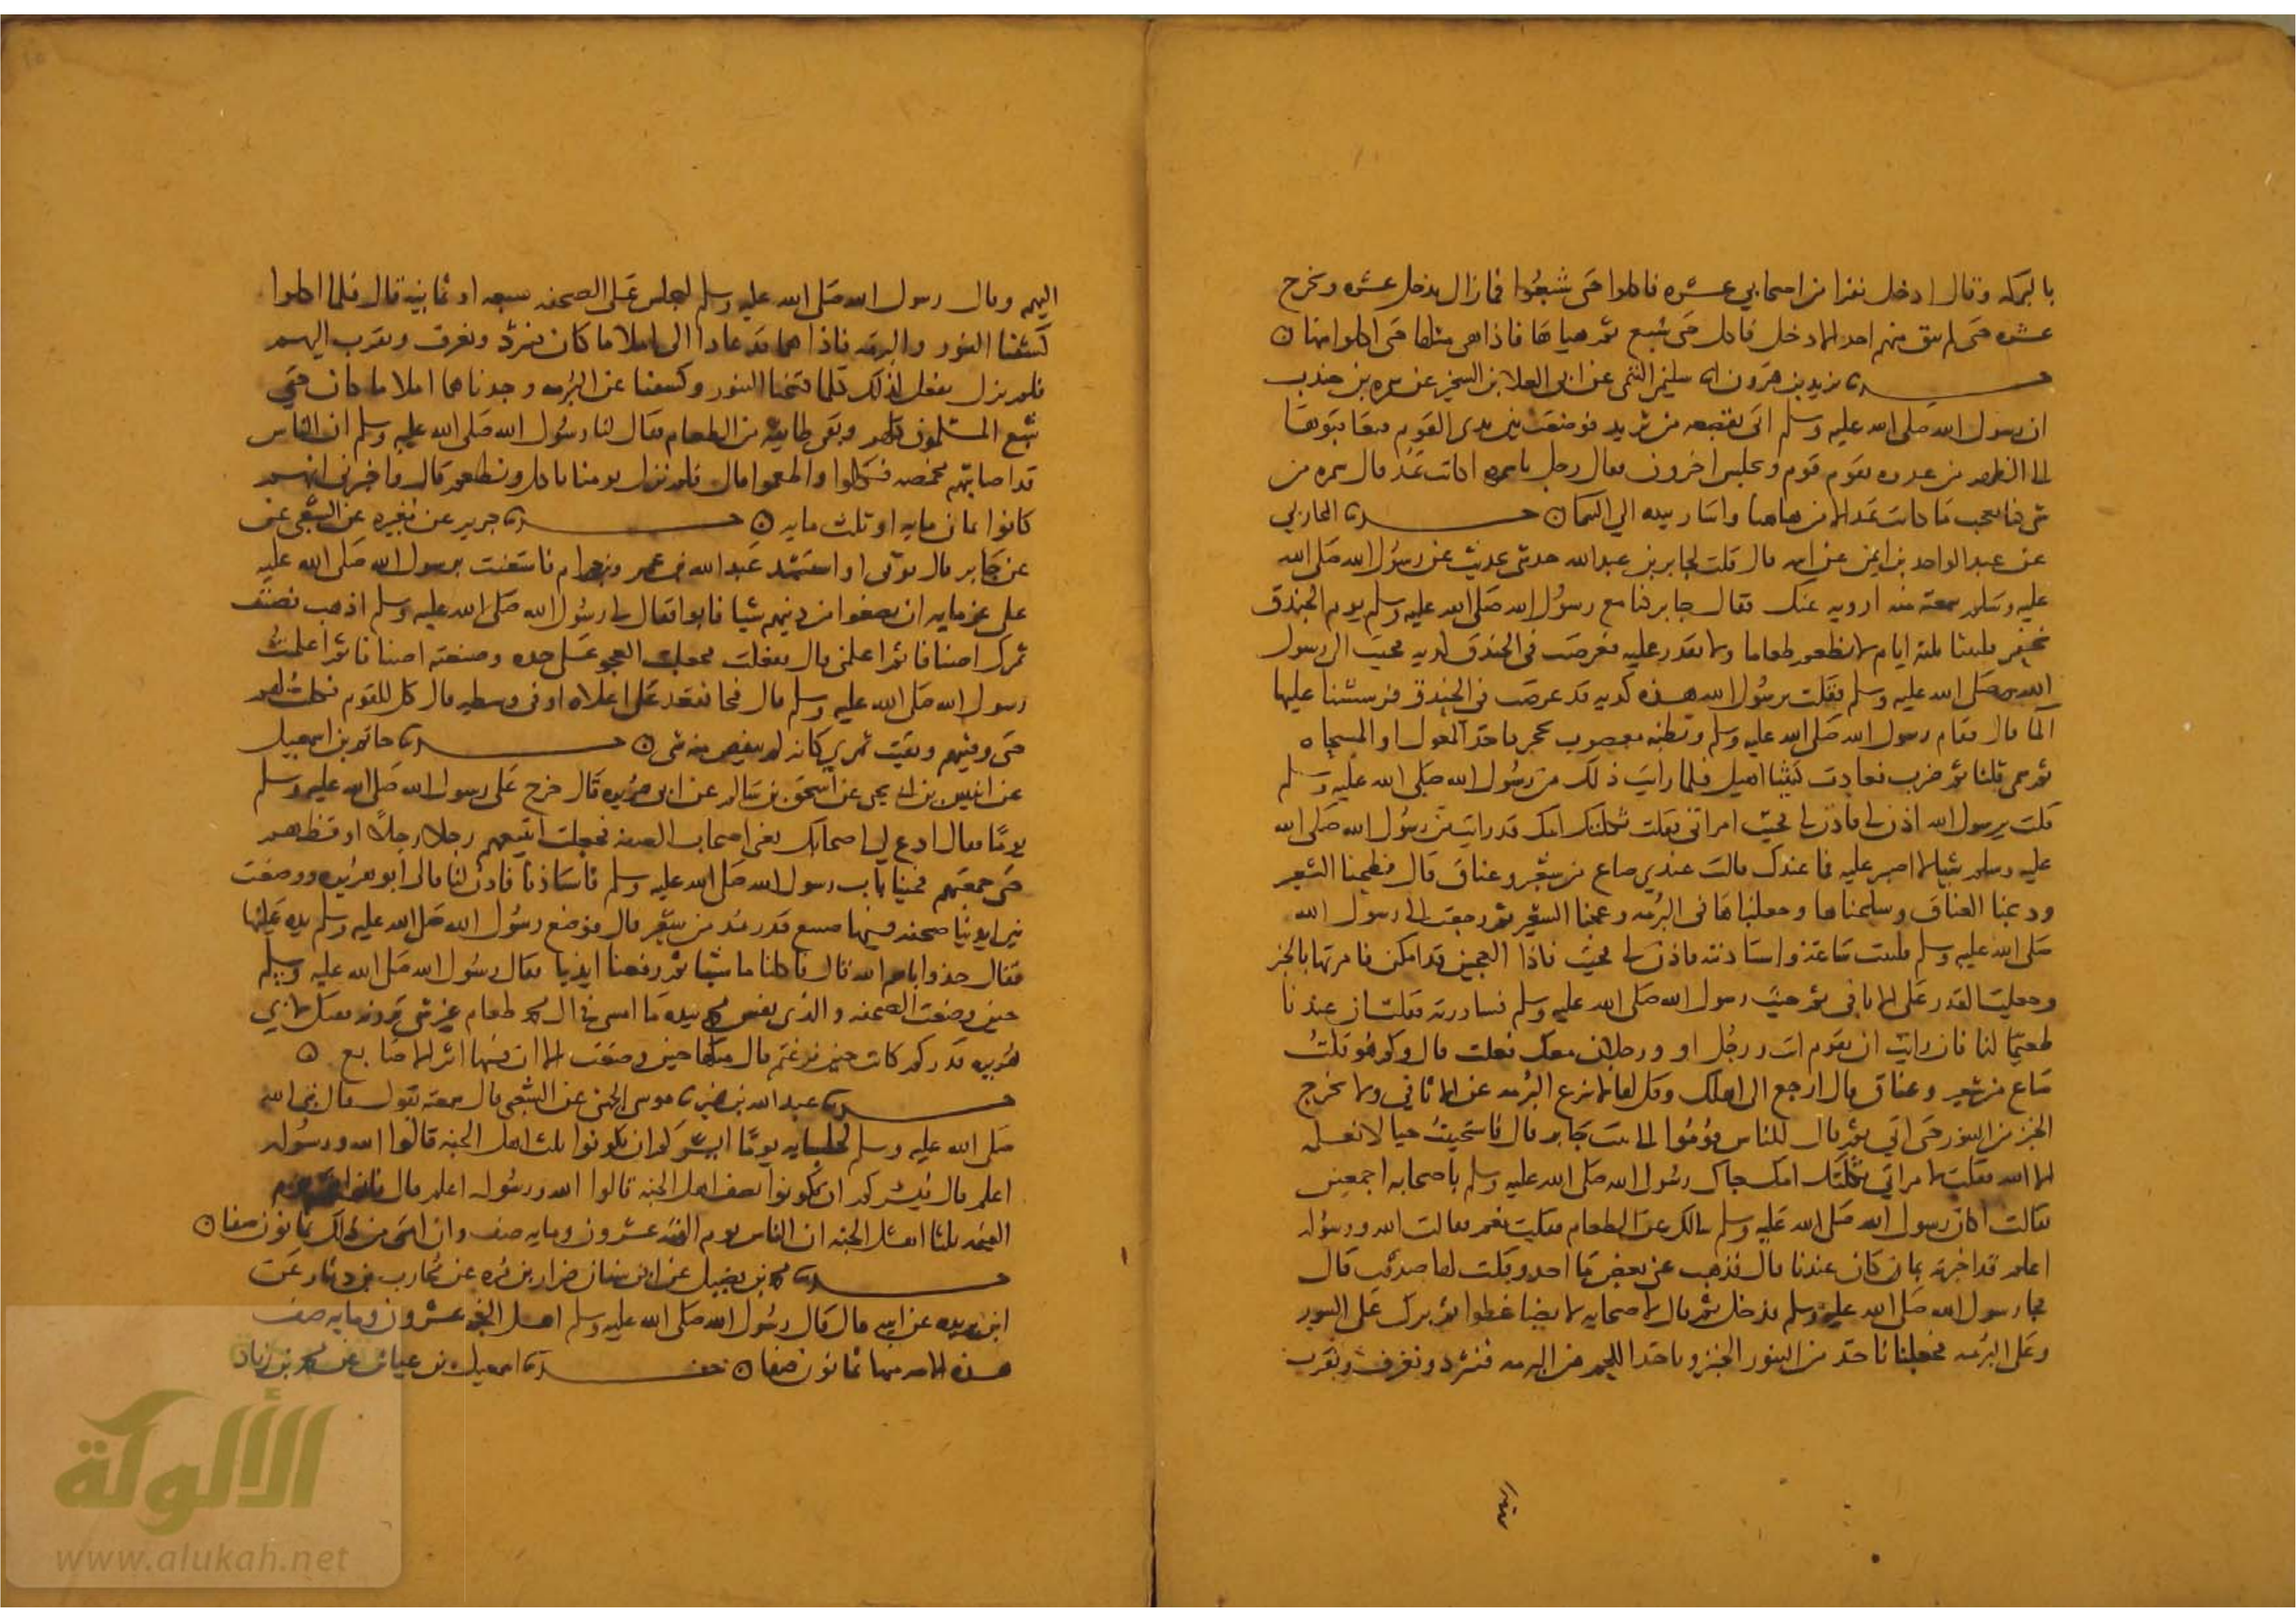 بالبركه وقال ادخل نفرا من اصحابي عشره فاكلوا حتى شبعوا فما زال يدخل عشره ويخرج
عشره حتى لم يبق منهم احد الا دخل فاكل حتى شبع ثم هياها فاذا هي مثلها حتى اكلوا منها ه
يزيد بن هرون سليمن التيمي عن ابي العلا بن الشخير عن سمره بن جندب
ان رسول الله صلى الله عليه وسلم اتى بقصعه من ثريد فوضعت بين يدي القوم فتعاقبوها
الى الظهر من غدوه يقوم قوم ويجلس اخرون فقال رجل ياسمره اكانت تمد قال سمره من
شي كنا نعجب ما كانت تمد الا من هاهنا واشار بيده الي السما ه المحاربي
عن عبد الواحد بن ايمن عن ابيه قال قلت لجابر بن عبد الله حدثني بحديث عن رسول الله صلى الله
عليه وسلم سمعته منه ارويه عنك فقال جابر كنا مع رسول الله صلى الله عليه وسلم يوم الخندق
نحفر فلبثنا ثلثه ايام لا نطعم طعاما ولا نقدر عليه فعرضت في الخندق كديه فجيت الى رسول
الله صلى الله عليه وسلم فقلت يرسول الله هذه كديه قد عرضت في الخندق فرششنا عليها
الما قال فقام رسول الله صلى الله عليه وسلم وبطنه معصوب بحجر فاخذ المعول او المسحاه
ثم سمى ثلثا ثم ضرب فعادت كثيبا اهيل فلما رايت ذلك من رسول الله صلى الله عليه وسلم
قلت يرسول الله اذن لي فاذن لي فجيت امراتي فقلت ثكلتك امك قد رايت من رسول الله صلى الله
عليه وسلم شيا لا اصبر عليه فما عندك قالت عندي صاع من شعير وعناق قال فطحنا الشعير
وذبحنا العناق وسلخناها وجعلناها في البرمه وعجنا الشعير ثم رجعت الى رسول الله
صلى الله عليه وسلم فلبثت ساعه واستاذنته فاذن لي فجيت فاذا العجين قد امكن فامرتها بالخبز
وجعلت القدر على الاثافي ثم جيت رسول الله صلى الله عليه وسلم فساررته فقلت ان عندنا
طعيما لنا فان رايت ان تقوم انت ورجل او ورجلان معك فعلت قال وكم هو قلت
صاع من شعير وعناق قال ارجع الى اهلك وقل لها لا تنزع البرمه عن الاثافي ولا تخرج
الخبز من التنور حتى اتي ثم قال للناس قوموا الى بيت جابر قال فاستحييت حيا لا نعلمه
الا الله فقلت لامراتي ثكلتك امك جاك رسول الله صلى الله عليه وسلم باصحابه اجمعين
فقالت اكان رسول الله صلى الله عليه وسلم سالك عن الطعام فقلت نعم فقالت الله ورسوله
اعلم قد اخبرته بما كان عندنا قال فذهب عني بعض ما اجد وقلت لها صدقت قال
فجا رسول الله صلى الله عليه وسلم فدخل ثم قال لاصحابه لا تضاغطوا ثم برك على التنور
وعلى البرمه فجعلنا ناخذ من التنور الخبز وناخذ اللحم من البرمه فنثرد ونغرف ونقرب
اليهم وقال رسول الله صلى الله عليه وسلم ليجلس على الصحفه سبعه او ثمانيه قال فلما اكلوا
كشفنا التنور والبرمه فاذا هما قد عادا الى املا ما كان فنثرد ونغرف ونقرب اليهم
فلم نزل نفعل كذلك كلما فتحنا التنور وكشفنا عن البرمه وجدناهما املا ما كان حتى
شبع المسلمون كلهم وبقى طايفه من الطعام فقال لنا رسول الله صلى الله عليه وسلم ان الناس
قد اصابتهم مخمصه فكلوا واطعموا قال فلم نزل يومنا ناكل ونطعم قال واخبرني انهم
كانوا ثمان مايه او ثلث مايه ه جرير عن مغيره عن الشعبي عن
عن جابر قال توفى او استشهد عبد الله بن عمرو بن حرام فاستعنت برسول الله صلى الله عليه
على غرمايه ان يضعوا من دينهم شيا فابوا فقال لي رسول الله صلى الله عليه وسلم اذهب فصنف
تمرك اصنافا ثم اعلمني قال ففعلت فجعلت العجوه على حده وصنفته اصنافا ثم اعلمت
رسول الله صلى الله عليه وسلم قال فجا فقعد على اعلاه او في وسطه قال كل للقوم فكلت لهم
حتى وفيتهم وبقيت تمري كانه لم ينقص منه شي ه حاتم بن اسمعيل
عن انيس بن ابي يحيى عن اسحق بن سالم عن ابي هريره قال خرج على رسول الله صلى الله عليه وسلم
يوما فقال ادع لي اصحابك يعني اصحاب الصفه فجعلت اتبعهم رجلا رجلا اوقظهم
حتى جمعتهم فجينا باب رسول الله صلى الله عليه وسلم فاستاذنا فاذن لنا قال ابو هريره ووضعت
بين ايدينا صحفه فيها صنيع قدر مد من شعير قال فوضع رسول الله صلى الله عليه وسلم يده عليها
فقال خذوا باسم الله قال فاكلنا ما شينا ثم رفعنا ايدينا فقال رسول الله صلى الله عليه وسلم
حين وضعت الصحفه والذي نفس محمد بيده ما امسى في ال محمد طعام غير شي ترونه فقيل لابي
هريره قدركم كانت حين فرغتم قال مثلها حين وضعت الا ان فيها اثر الاصابع ه
عبد الله بن نمير موسى الجهني عن الشعبي قال سمعته يقول قال نبي الله
صلى الله عليه وسلم يوما ايسركم ان تكونوا ثلث اهل الجنه قالوا الله ورسوله
اعلم قال يسركم ان تكونوا نصف اهل الجنه قالوا الله ورسوله اعلم قال
اهل الجنه ان الناس يوم القيمه عشرون ومايه صف وان امتي من ذلك ثمانون صفا ه
محمد بن فضيل عن ابي سنان ضرار بن مره عن محارب بن دثار عن
ابن بريده عن ابيه قال قال رسول الله صلى الله عليه وسلم اهل الجنه عشرون ومايه صف
هذه الامه منها ثمانون صفا ه اسمعيل بن عياش عن محمد بن زياد
الألوكة
www.alukah.net